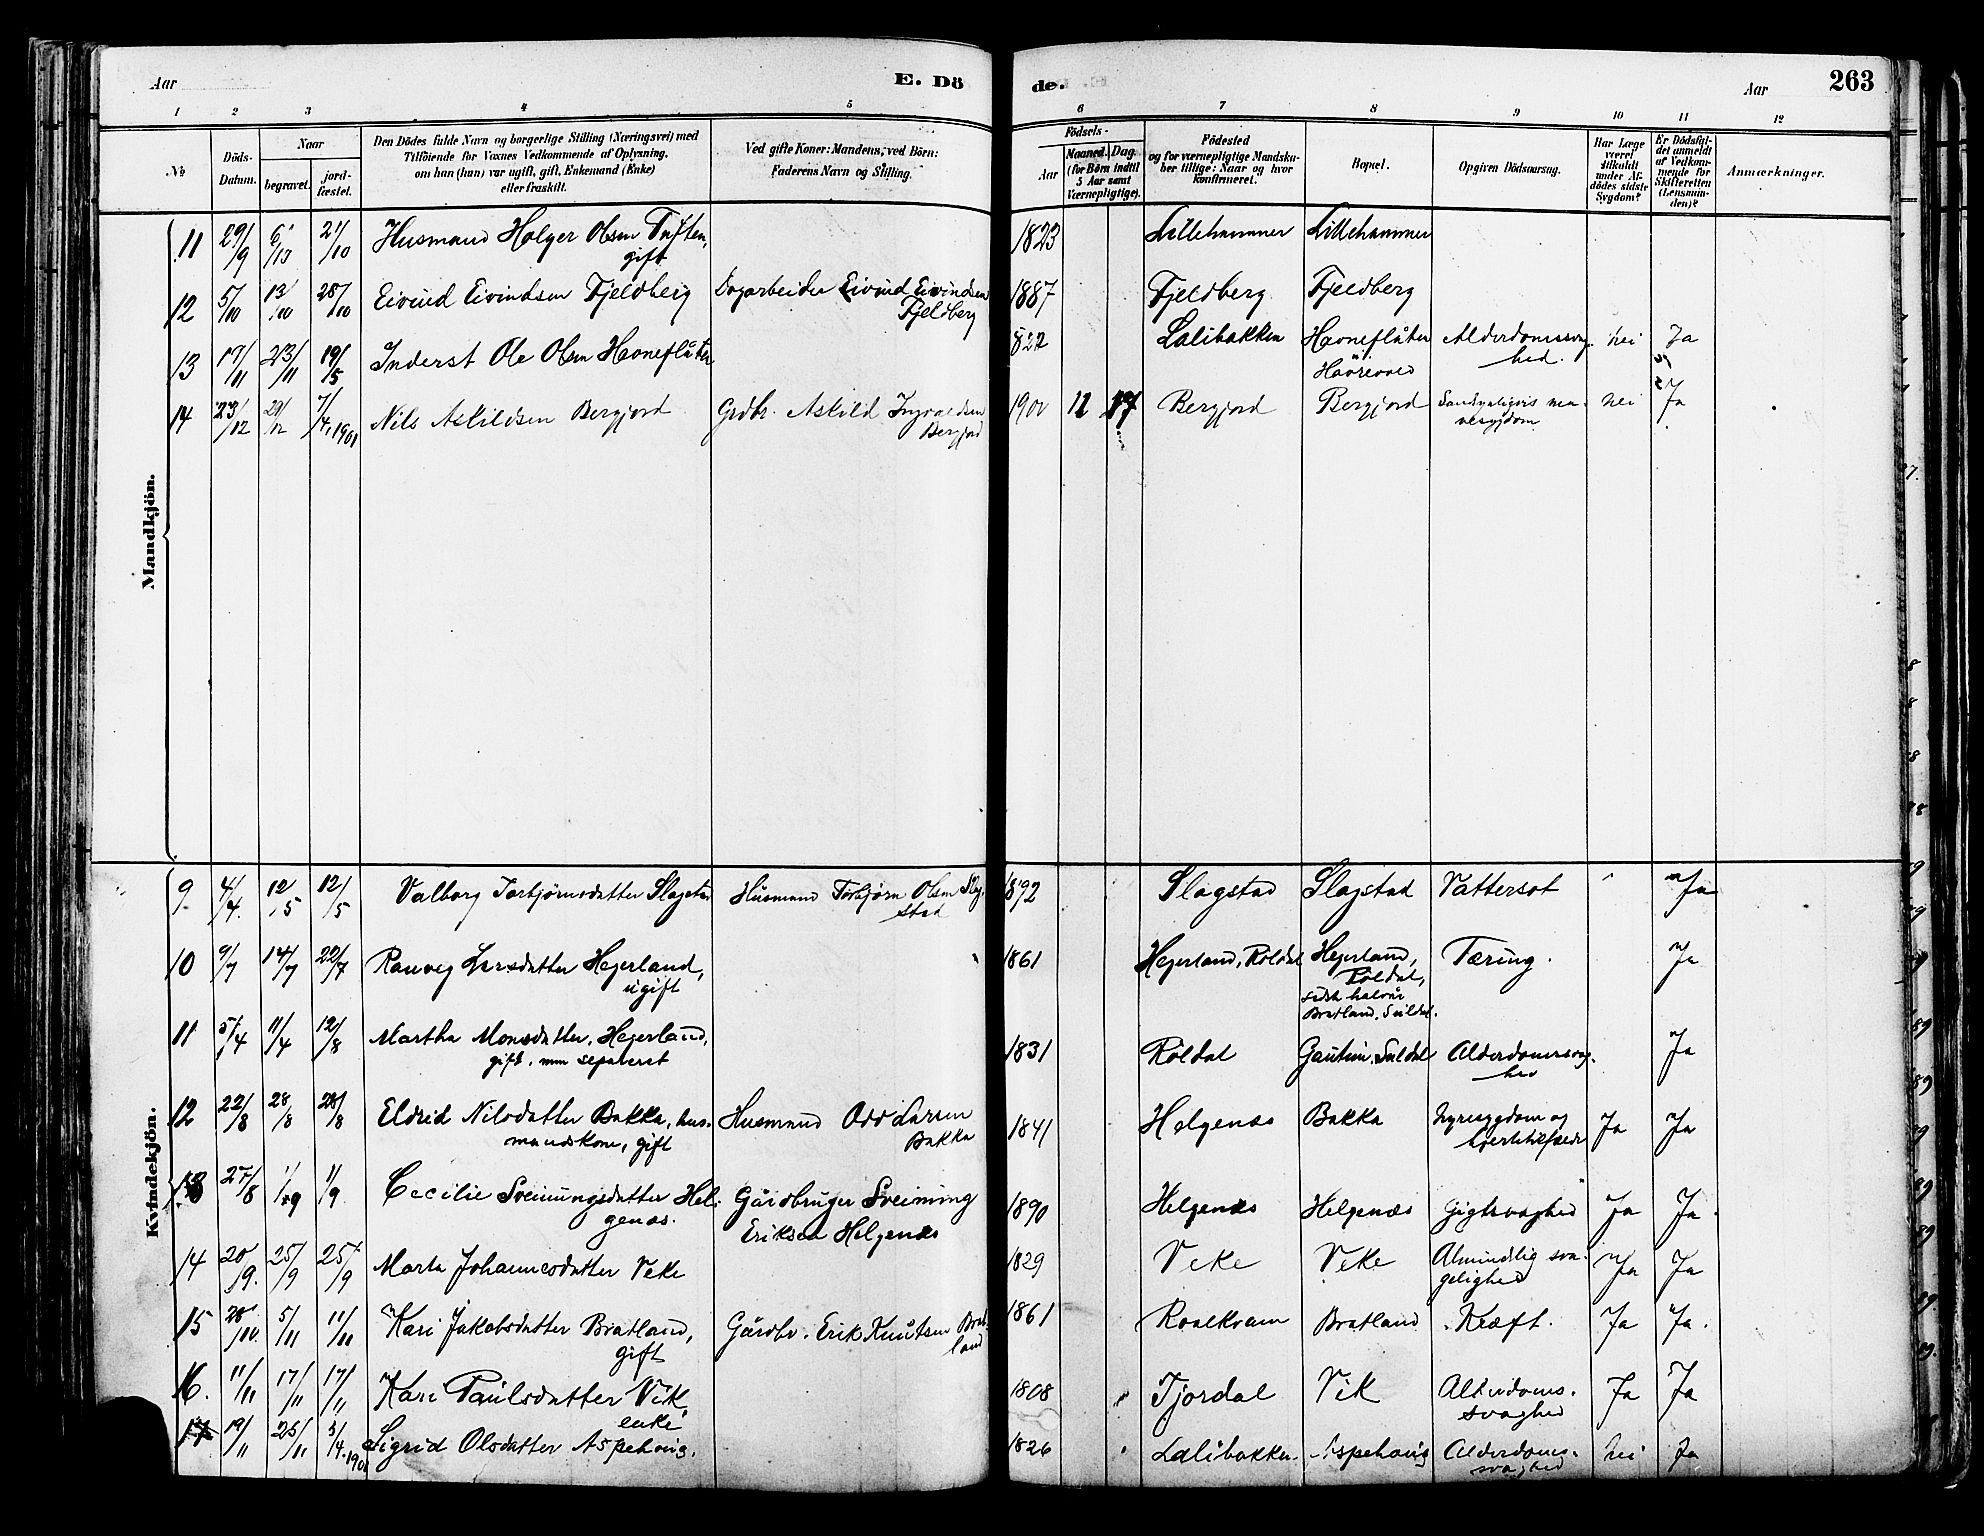 Aar
E. Dö
de.
Aar
263
1 2 3 4 5 6 7 8 9 10 11 12
No
Döds-
Datum.
Naar
begravet.
jord-
fæstet.
Den Dödes fulde Navn og borgerlige Stilling (Næringsvei) med
Tilföiende for Voxnes Vedkommende af Oplysning,
om han (hun) var ugift, gift, Enkemand (Enke)
eller fraskilt.
Ved gifte Koner: Mandens, ved Börn:
Faderens Navn og Stilling.
Födsels-
Aar
Maaned. Dag.
(for Börn indtil
5 Aar samt
Værnepligtige).
Födested
og for værnepligtige Mandska-
ber tillige: Naar og hvor
konfirmeret.
Bopæl.
Opgiven Dödsaarsag.
Har Læge
været
tilkaldt
under Af-
dödes sidste
Sygdom?
Er Dödsfal-
det anmeldt
af Vedkom-
mende for
Skifteretten
(Lensman-
den)?
Anmærkninger.
Mandkjön.
11 29/9 6/10 21/10 Husmand Holger Olsen Tuften, 1823 Lillehammer Lillehammer
gift
12 5/10 13/10 28/10 Eivind Eivindsen Fjeldberg Dagarbeider Eivind Eivindsen 1887 Fjeldberg Fjeldberg
Fjeldberg
13 17/11 23/11 19/5 Inderst Ole Olsen Havneflåten 822 Lalibakken Havneflåten Alderdomssvag- nei Ja
hed.
14 23/12 29/12 7/4 1901 Nils Askildsen Bergjord Grdbr. Askild Ingvaldsen 1900 12 17 Bergjord Bergjord Sandsynligvis nei Ja
Bergjord
Kvindekjön.
9 4/4. 12/5 12/5 Valborg Torbjørnsdatter Slagstad Husmand Torbjørn Olsen Slag- 1892 Slagstad Slagstad Vattersot Ja
stad
10 9/7 14/7 22/7 Ranveig Larsdatter Hejerland, 1861 Hejerland, Röldal Hejerland, Tæring. Ja
ugift
Röldal,
Bratland, Suldal.
11 5/4 11/4 12/8 Martha Monsdatter Hejerland, 1831 Röldal Gautun, Suldal Alderdomssvag- Ja
gift, men separeret
hed
12 22/8 28/8 28/8 Eldrid Nilsdatter Bakka, hus- Husmand Odd Larsen 1841 Helgenæs Bakka Nyresygdom og Ja Ja
mandskone, gift
Bakka
hjertetilfælde
13 27/8 1/9 1/9 Cecilie Sveinungsdatter Hel- Gårdbruger Sveinung 1890 Helgenæs Helgenæs Gigtsvaghed Ja Ja.
genæs.
Eriksen Helgenæs
14 20/9. 25/9 25/9 Marta Johannesdatter Veke 1829 Veke Veke Almindlig sva- Ja Ja
gelighed
15 28/10. 5/11 11/11 Kari Jakobsdatter Bratland, Gårdbr. Erik Knutsen Brat- 1861 Roalkvam Bratland Kræft. Ja Ja.
gift
land
16. 11/11 17/11 17/11 Kari Paulsdatter Vik 1808 Fjordal Vik Alderdoms- Ja Ja
enke
svaghed
17 19/11 25/11 5/4. 1901 Sigrid Olsdatter Aspehaug. 1826 Lalibakken. Aspehaug Alderdoms- nei Ja
svaghed